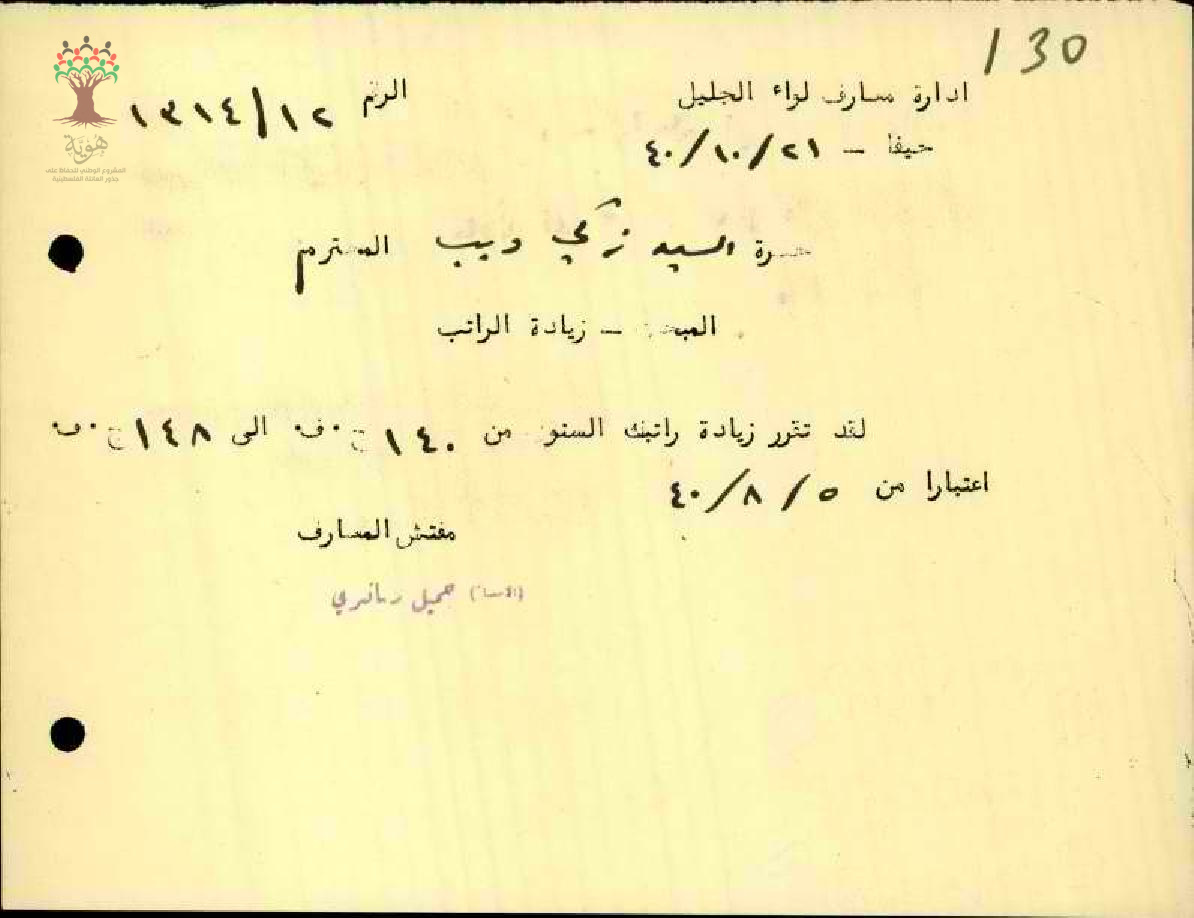 130
ادارة معارف لواء الجليل
الرقم ١٣١٤/١٢
حيفا – ٤٠/١٠/٢١
حضرة السيد زكي ديب المحترم
المبحث – زيادة الراتب
لقد تقرر زيادة راتبك السنوي من ١٤٠ ج٠ف٠ الى ١٤٨ ج٠ف٠
اعتبارا من ٤٠/٨/٥
مفتش المعارف
جميل
هوية
المشروع الوطني للحفاظ على
جذور العائلة الفلسطينية